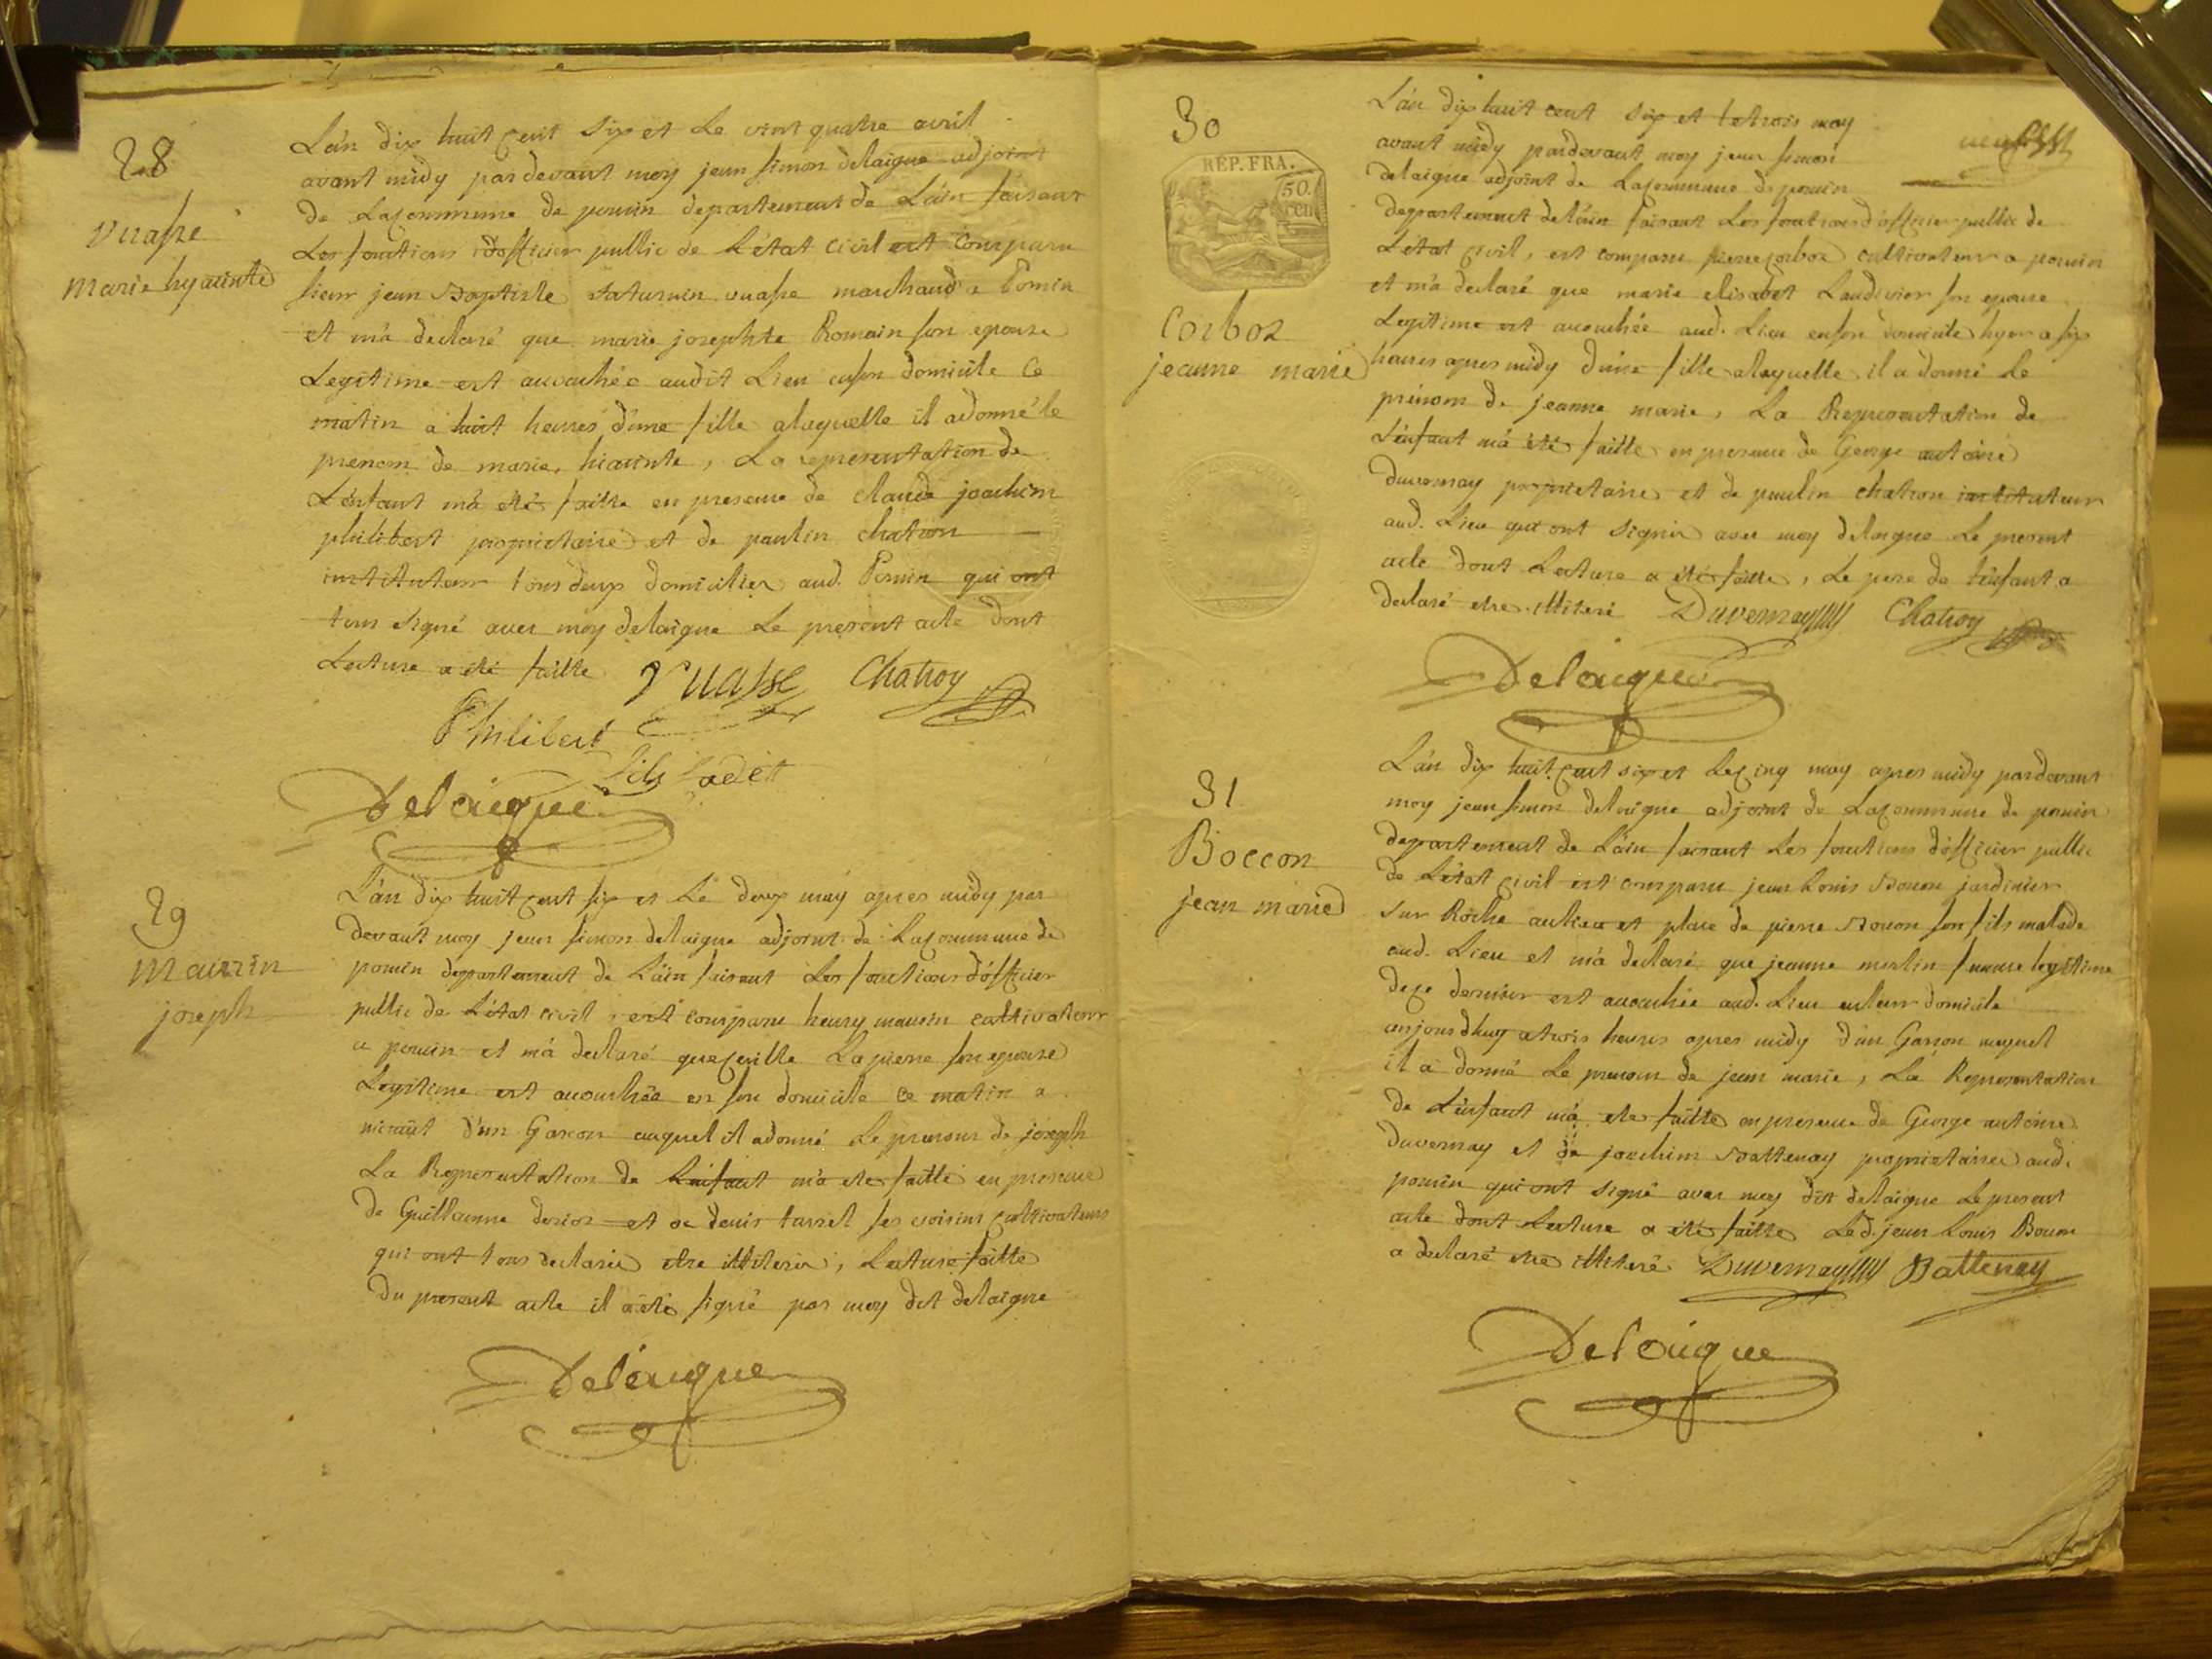 28
Vuasse
marie hyacinte
L'an dix huit cent six et le vint quatre avril
avant midy pardevant moy jean simon delaigue adjoint
de la commune de pomin departement de L'ain faisant
Les fonctions d'officier public de L'état civil est comparu
sieur jean Baptiste Saturnin vuasse marchand a Pomin
et m'a declaré que marie josephte Romain son epouse
Legitime est accouchée audit Lieu en son domicile ce
matin a huit heures d'une fille a laquelle il a donné le
prenom de marie hiacinte, La representation de
L'enfant m'a eté faitte en presence de claude joachim
philibert proprietaire et de paulin chatron
instituteur tous deux domicilies aud. Pomin qui ont
tous signé avec moy delaigue Le present acte dont
Lecture a été faitte Vuasse Chatroy
Philibert
fils Cadet
Delaigue
29
maurin
joseph
L'an dix huit cent six et Le deux may apres midy par
devant moy jean simon delaigue adjoint de La commune de
pomin departement de L'ain faisant Les fonctions d'officier
public de L'état civil, est comparu henry maurin cultivateur
a pomin et m'a declaré que cecille Lapierre son epouse
Legitime est accouchée en son domicile ce matin a
minuit d'un Garcon auquel il a donné Le prenom de joseph
La Representation de L'enfant m'a eté faitte en presence
de Guillaume et de denis tarrel ses voisins cultivateurs
qui ont tous declaré etre illiteré, Lecture faitte
du present acte il a été signé par moy dit delaigue
Delaigue
30
REP. FRA.
50
cen
Corboz
jeanne marie
L'an dix huit cent six et le trois may
avant midy pardevant moy jean simon
delaigue adjoint de La commune de pomin
departement de L'ain faisant Les fonctions d'officier public de
L'état civil, est comparu pierre corboz cultivateur a pomin
et m'a declaré que marie elisabet Laudivier son epouse
Legitime est accouchée aud. Lieu en son domicile hyer a six
heures apres midy d'une fille a laquelle il a donné Le
prénom de jeanne marie, La Representation de
L'enfant m'a été faitte en presence de George antoine
duvernay proprietaire et de paulin chatron instituteur
aud. Lieu qui ont signés avec moy delaigue Le present
acte dont Lecture a été faitte, Le pere de L'enfant a
declaré etre illiteré Duvernay Chatroy
Delaigue
31
Boccon
jean marie
L'an dix huit cent six et Le cinq may apres midy pardevant
moy jean simon delaigue adjoint de La commune de pomin
departement de L'ain faisant Les fonctions d'officier public
de L'état civil est comparu jean Louis Bocon jardinier
sur Roche au lieu et place de pierre Bocon son fils malade
aud. Lieu et m'a declaré que jeanne merlin femme legitime
de ce dernier est accouchée aud. Lieu en leur domicile
aujourdhuy a trois heures apres midy d'un Garson auquel
il a donné Le prenom de jean marie, La Representation
de L'enfant m'a eté faitte en presence de George antoine
duvernay et de joachim Battenay proprietaires aud.
pomin qui ont signé avec moy dit delaigue Le present
acte dont Lecture a été faitte Led. jean Louis Bocon
a declaré etre illiteré Duvernay Battenay
Delaigue